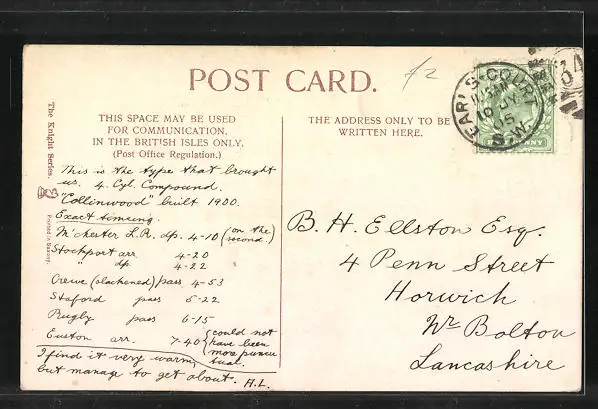 POST CARD.
£2
THIS SPACE MAY BE USED
FOR COMMUNICATION,
IN THE BRITISH ISLES ONLY,
(Post Office Regulation.)
THE ADDRESS ONLY TO BE
WRITTEN HERE.
EARL'S COURT
10 JY
05
S.W.
The Knight Series.
Printed in Saxony.
This is the type that brought
us. 4. Cyl. Compound.
"Collinwood" built 1900.
Exact timing.
M'chester L.R. dp. 4-10 (on the second.)
Stockport arr. 4-20
" dp. 4-22
Crewe (slackened) pass 4-53
Staford pass 5-22
Rugby pass 6-15
Euston arr. 7-40 {could not
have been
more punc
tual.
I find it very warm,
but manage to get about. H.L.
B. H. Ellston Esq.
4 Penn Street
Horwich
Nr Bolton
Lancashire